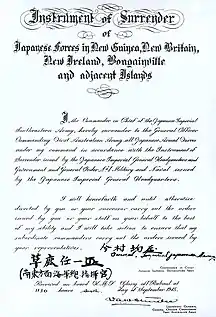 Instrument of Surrender
of
Japanese Forces in New Guinea, New Britain,
New Ireland, Bougainville
and adjacent Islands
I, the Commander in Chief of the Japanese Imperial
Southeastern Army, hereby surrender to the General Officer
Commanding First Australian Army all Japanese Armed Forces
under my command in accordance with the Instrument of
Surrender issued by the Japanese Imperial General Headquarters and
Government and General Order No. 1 Military and Naval issued
by the Japanese Imperial General Headquarters.
I will henceforth and until otherwise
directed by you or your successor carry out the orders
issued by you or your staff on your behalf to the best
of my ability and I will take action to ensure that my
subordinate commanders carry out the orders issued by
your representatives.
今村均
草鹿任一
(南東方面海軍總指揮官)
Commander in Chief
Japanese Imperial Southeastern Army
Received on board H.M.S. Glory off Rabaul at
hours